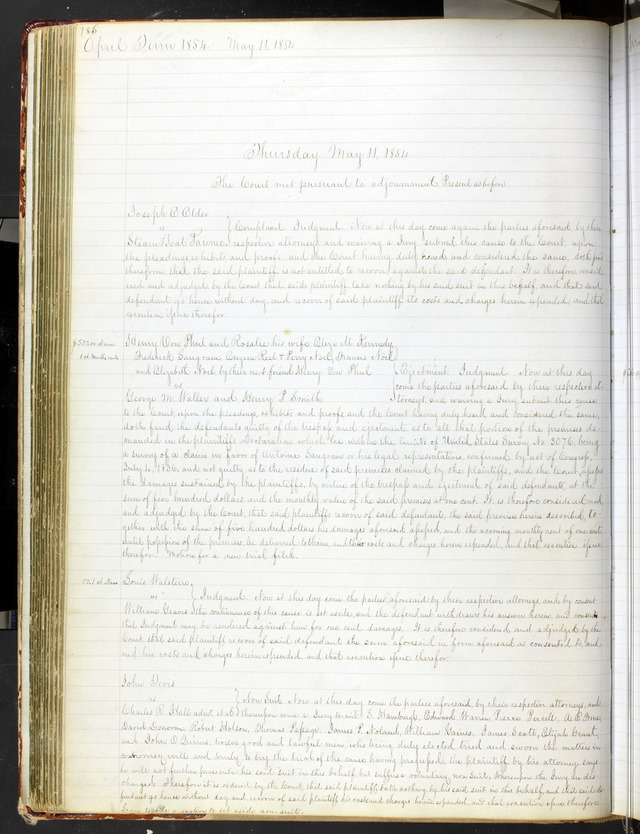 186
April Term 1854. May 11, 1854
Thursday May 11, 1854
The Court met pursuant to adjournment Present as before
Joseph C Older
vs } Complaint Judgment. Now at this day come again the parties aforesaid by their
Steam Boat Pawnee respective attorneys and waiving a Jury submit this cause to the Court upon
the pleadings, exhibits and proofs, and the Court having duly heard and considered the same, doth find
therefrom that the said plaintiff is not entitled to recover against the said defendant. It is therefore consid
ered and adjudged by the Court that said plaintiff take nothing by his said suit in this behalf, and that said
defendant go hence without day and recover of said plaintiff its costs and charges herein expended, and that
execution issue therefor.
Henry Von Phul and Rosalie his wife, Eliza M. Kennedy
Frederick Saugrain Eugenia Reel & Perry Noel, Frances Noel
and Elizabeth Noel by their next friend Henry Von Phul } Ejectment Judgment Now at this day
vs come the parties aforesaid by their respective at
George M. Waller and Henry P Smith torneys, and waiving a Jury submit this cause
to the Court upon the pleadings, exhibits and proofs and the Court having duly heard and considered the same,
doth find the defendants guilty of the trespass and ejectment as to all that portion of the premises de
manded in the plaintiffs Declaration which lie within the limits of United States Survey No. 3076, being
a survey of a claim in favor of Antoine Saugrain or his legal representatives confirmed by act of Congress
July 4, 1836, and not guilty as to the residue of said premises claimed by the plaintiffs, and the Court assess
the damages sustained by the plaintiffs, by virtue of the trespass and ejectment of said defendants at the
sum of five hundred dollars and the monthly value of the said premises at one cent. It is therefore considered
and adjudged by the Court, that said plaintiffs recover of said defendants, the said premises herein described, to
gether with the sum of five hundred dollars his damages aforesaid assessed, and the accruing monthly rent of one cent
until possession of the premises be delivered to them, and their costs and charges herein expended, and that execution issue
therefor. Motion for a new trial filed.
Louis Walstein,
vs } Judgment. Now at this day come the parties aforesaid by their respective attorneys, and by consent
William Graves the continuance of this cause is set aside, and the defendant withdraws his answer herein and consents
that Judgment may be rendered against him for one cent damages. It is therefore considered and adjudged by the
Court that said plaintiff recover of said defendant the sum aforesaid in form aforesaid as consented to, and
his costs and charges herein expended and that execution issue therefor.
John
vs } Non Suit Now at this day come the parties aforesaid by their respective attorneys, and
Charles R. Hall thereupon come a Jury to wit, Edward Warren, Pierce
David Donovan Robert Thomas James P. Noland, William Gaines, James Scott, Elijah Grant,
and John twelve good and lawful men, who being duly elected tried and sworn the matters in
controversy well and truly to try the trial of the cause having progressed the plaintiff by his attorney says
he will not further prosecute his said suit in this behalf but suffers a voluntary non suit. Whereupon the Jury are dis
charged. Therefore it is ordered by the Court, that said plaintiff take nothing by his said suit in this behalf, and that said de
fendant go hence without day and recover of said plaintiff his costs and charges herein expended, and that execution issue therefor
motion to set aside non suit